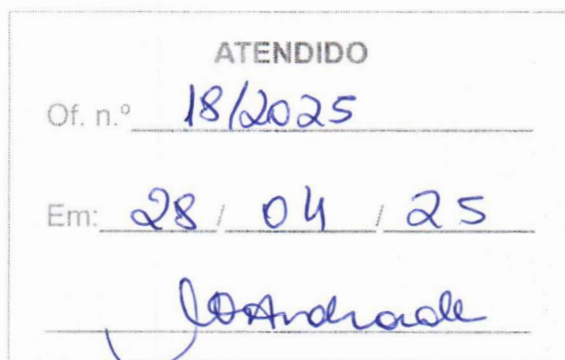 ATENDIDO
Of. n.º 18/2025
Em: 28 / 04 / 25